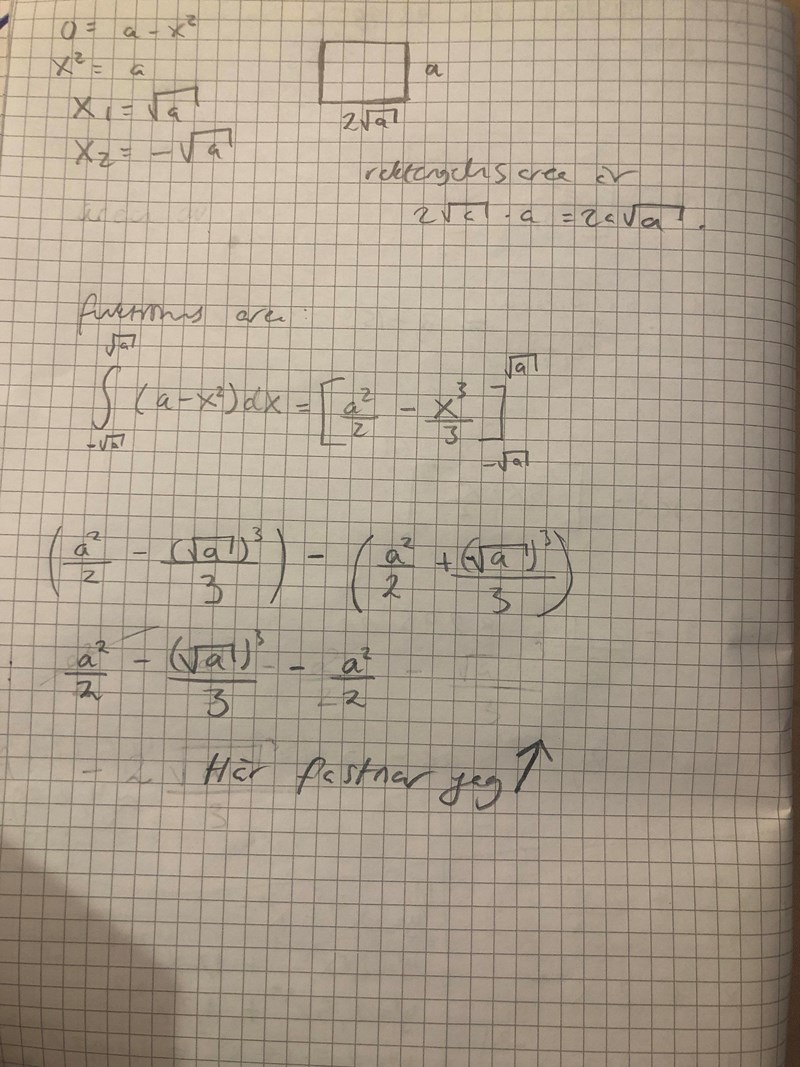 0 = a - x²
x² = a
x₁ = √a
x₂ = -√a
a
2√a
rektangelns area är
2√a · a = 2a√a.
funktionens area:
∫_{-√a}^{√a} (a - x²) dx = [a²/2 - x³/3]_{-√a}^{√a}
(a²/2 - (√a)³/3) - (a²/2 + (√a)³/3)
a²/2 - (√a)³/3 - a²/2
Här fastnar jag ↑